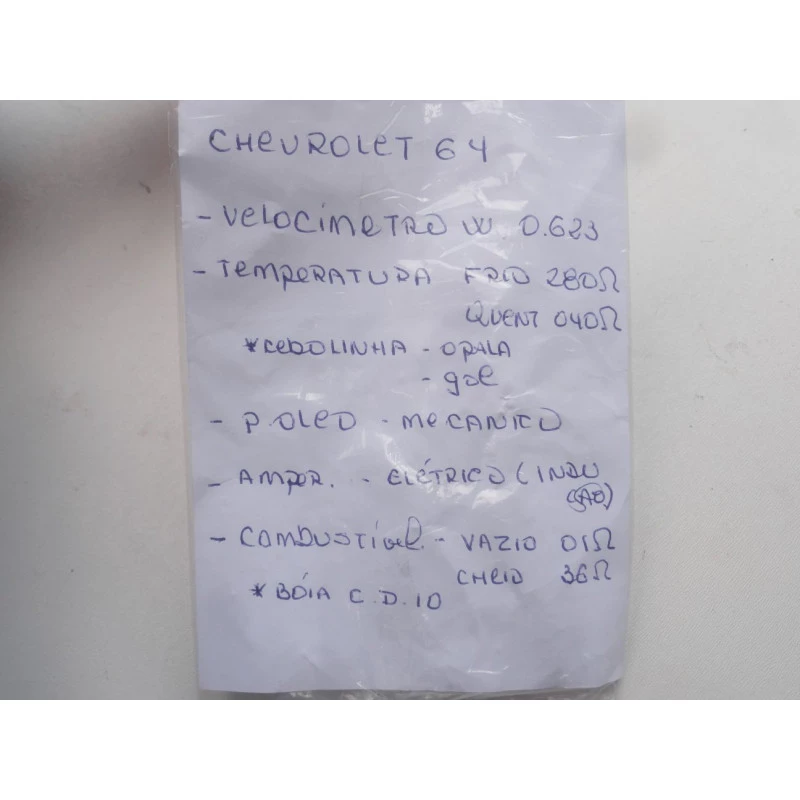 CHEVROLET 64
- VELOCÍMETRO W. 0.623
- TEMPERATURA FRIO 280Ω
QUENT 040Ω
*CEBOLINHA - OPALA
- gol
- P. OLEO - MECANICO
- AMPER. - ELÉTRICO (INDU
ÇÃO)
- COMBUSTÍVEL - VAZIO 01Ω
CHEIO 36Ω
* BÓIA C.D.10